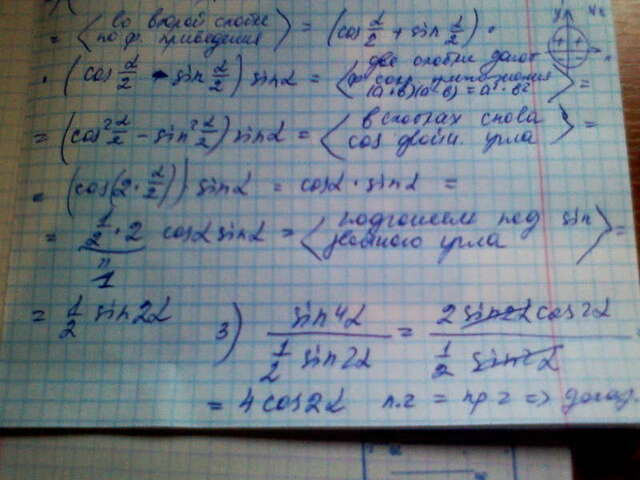 = ⟨ во второй скобке по ф. приведения ⟩ = (cos α/2 + sin α/2) ·
· (cos α/2 - sin α/2) sin α = ⟨ две скобки дают (a+b)(a-b) = a²-b² ⟩ =
= (cos² α/2 - sin² α/2) sin α = ⟨ в скобках снова cos двойн. угла ⟩ =
= (cos(2 · α/2)) · sin α = cos α · sin α =
= 1/2 · 2 cos α sin α = ⟨ подгоняем под sin двойного угла ⟩ =
1
= 1/2 sin 2α 3) sin 4α / (1/2 sin 2α) = 2 sin 2α cos 2α / (1/2 sin 2α)
= 4 cos 2α л.ч = пр.ч => доказ.